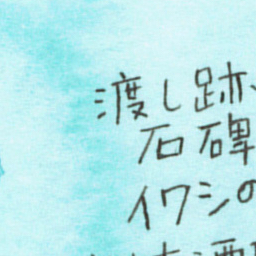 渡し跡、
石碑
イワシの
酒